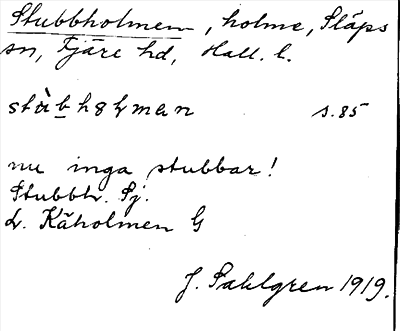 Stubbholmen, holme, Släps
sn, Fjäre hd, Hall. l.
stàbhɵlman s. 85
nu inga stubbar!
Stubbh. Sj.
L. Kåholmen G
J. Sahlgren 1919.